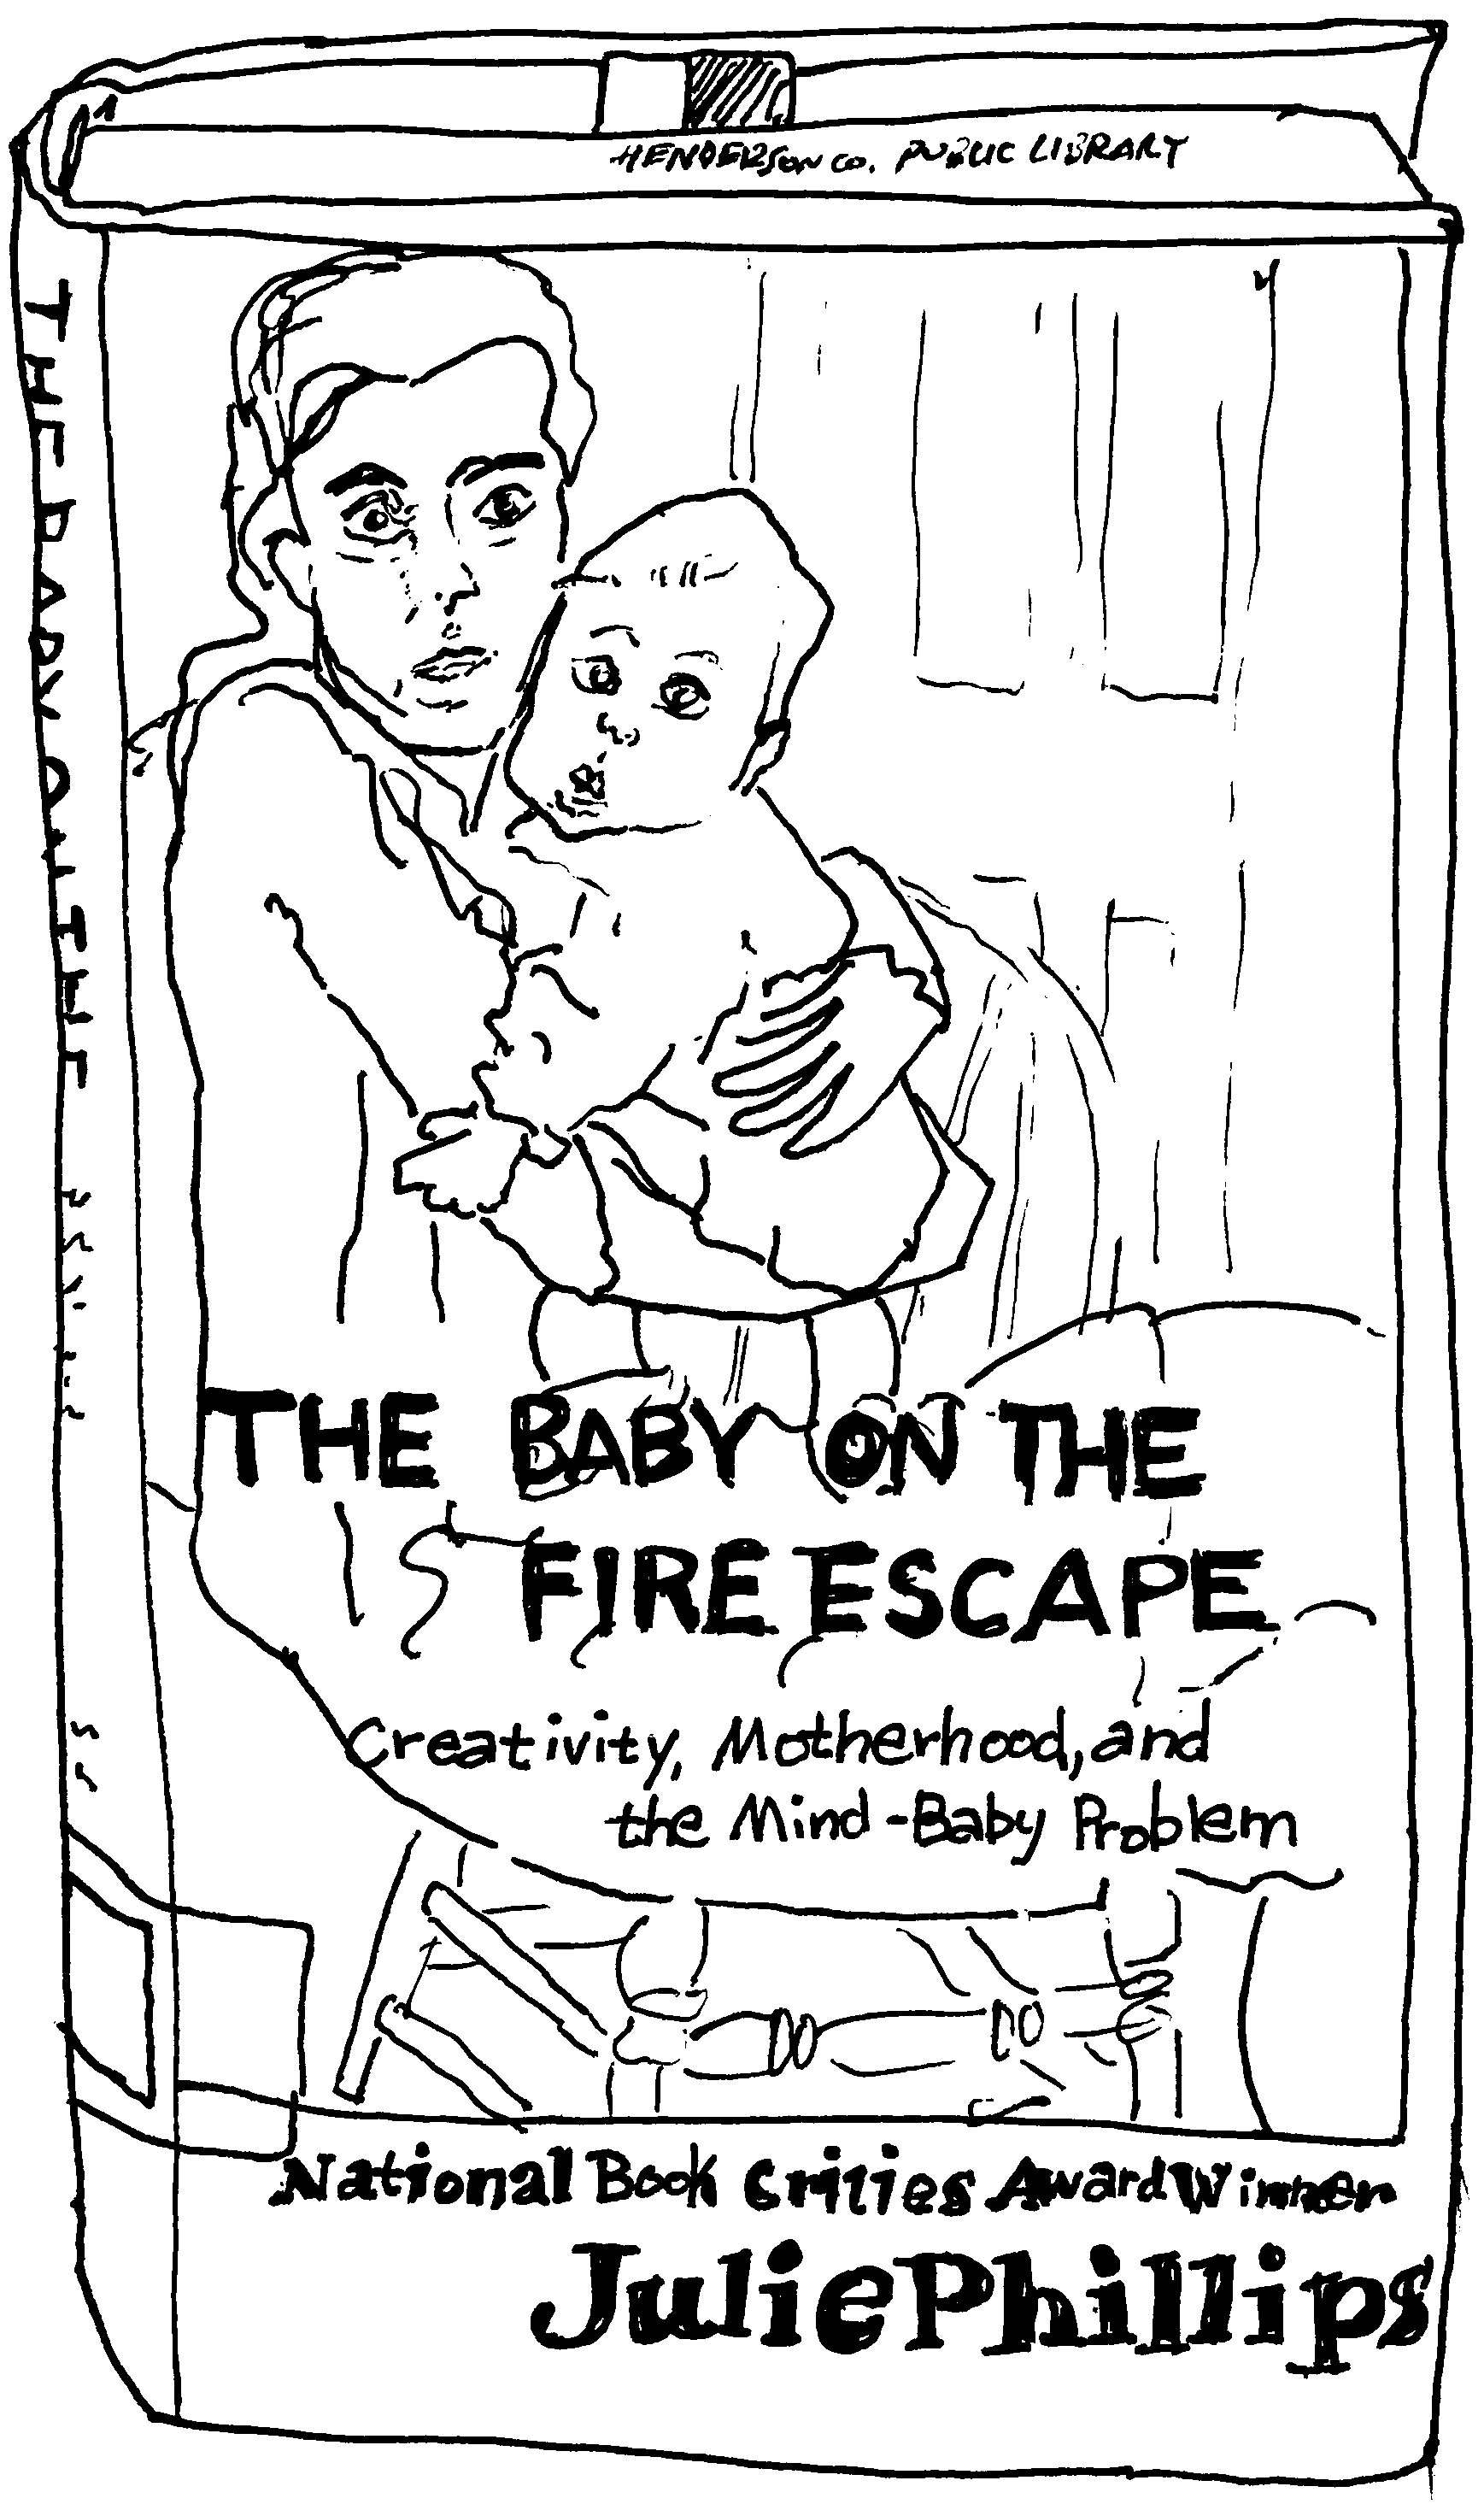 HENDERSON CO. PUBLIC LIBRARY
THE BABY ON THE
THE BABY ON THE
FIRE ESCAPE
Creativity, Motherhood, and
the Mind-Baby Problem
National Book Critics Award Winner
Julie Phillips